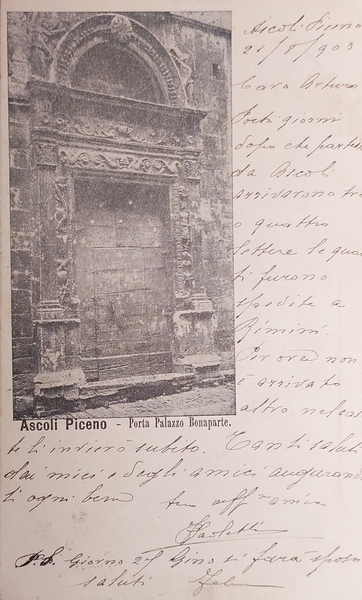 Ascoli Piceno
21/8/903
Caro Arturo
Pochi giorni
dopo che partisti
da Ascoli
arrivarono tre
o quattro
lettere le quali
ti furono
spedite a
Rimini.
Per ora non
è arrivato
altro, nel caso
Ascoli Piceno - Porta Palazzo Bonaparte.
te li invierò subito. Tanti saluti
dai miei e degli amici augurando
ti ogni bene
tuo aff.mo amico
P.S. Giorno 27 Gino si farà sposo
saluti